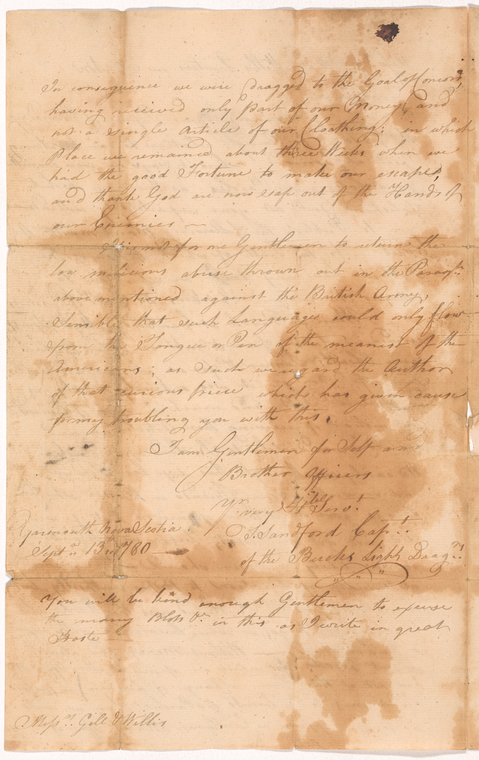 In consequence we were dragged to the Goal of Concord,
having received only Part of our Money, and
not a single Article of our Cloathing; in which
Place we remained about three Weeks when we
had the good Fortune to make our escape,
and thank God are now safe out of the Hands of
our Enemies —
for me Gentlemen to return the
low malicious abuse thrown out in the Paragh.
abovementioned against the British Army,
Sensible that such Language could only flow
from the Tongue or Pen of the meanest of the
Americans; as such we regard the Author
of that curious piece which has given cause
for my troubling you with this.
I am Gentlemen for Self and
Brother Officers
Yr.
very Hble Servt.
Yarmouth Nova Scotia T. Sandford Capt.
Septr. 13th 1780 —
of the Bucks Light Dragns.
You will be kind enough Gentlemen to excuse
the many Blots &c. in this as I write in great
Haste
Messrs. Gill & Willis